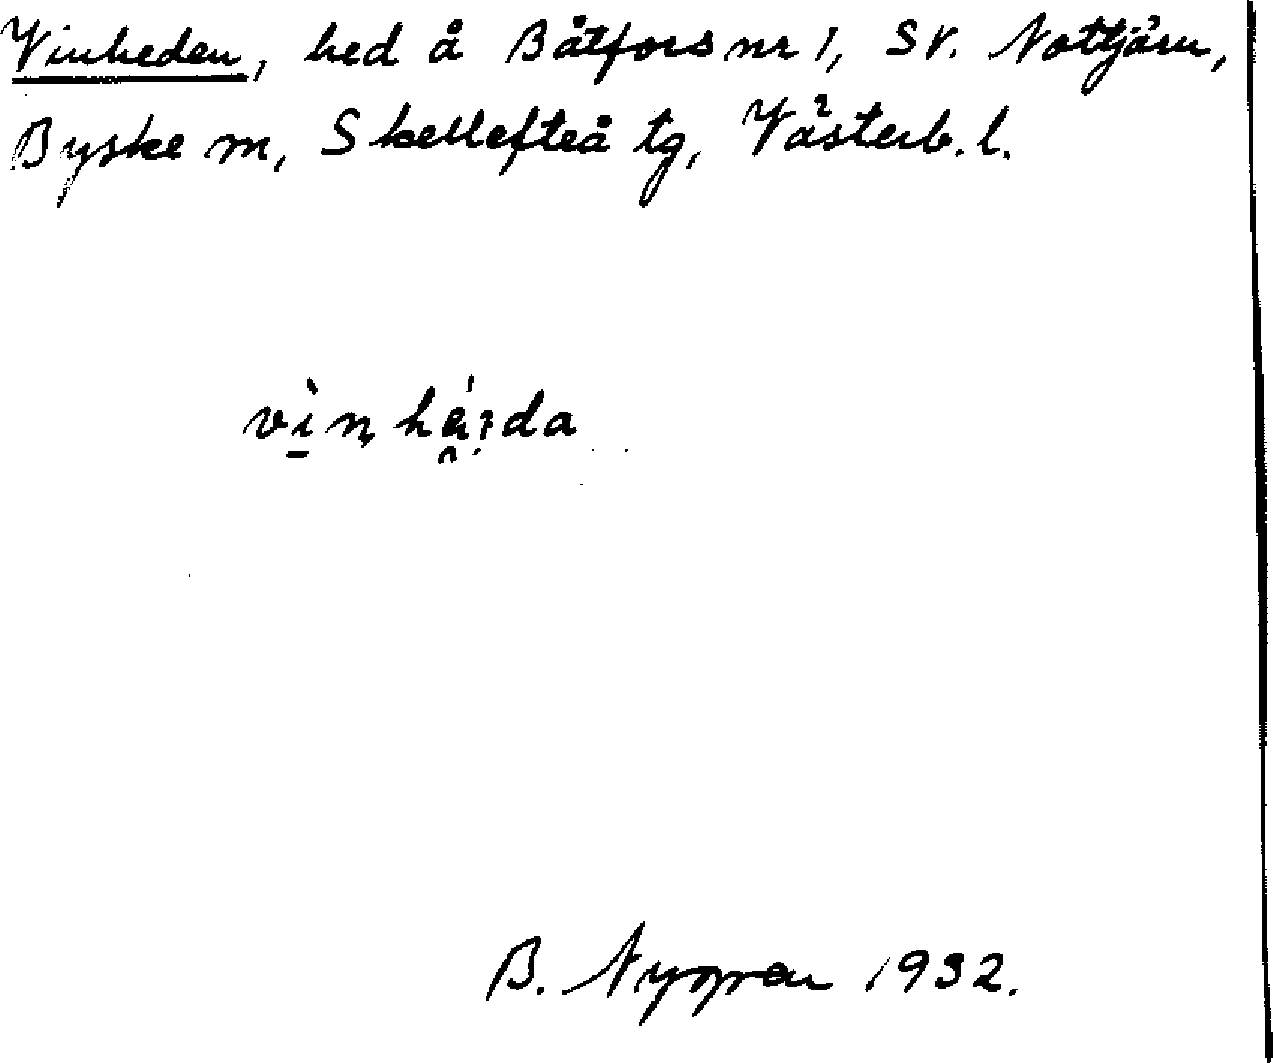 Vinheden, hed å Båtfors nr 1, SV. Nottjärn,
Byske sn, Skellefteå tg, Västerb. l.
vìn háida
B. Nygren 1932.